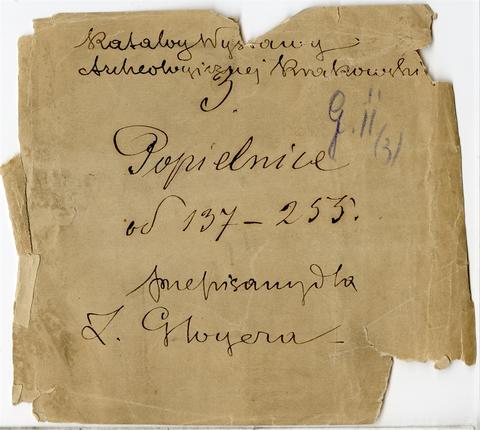 Katalog Wystawy
Archeologicznej Krakowski
3.
G. II
(3)
Popielnice
od 137 – 255.
przepisany dla
Z. Glogera –